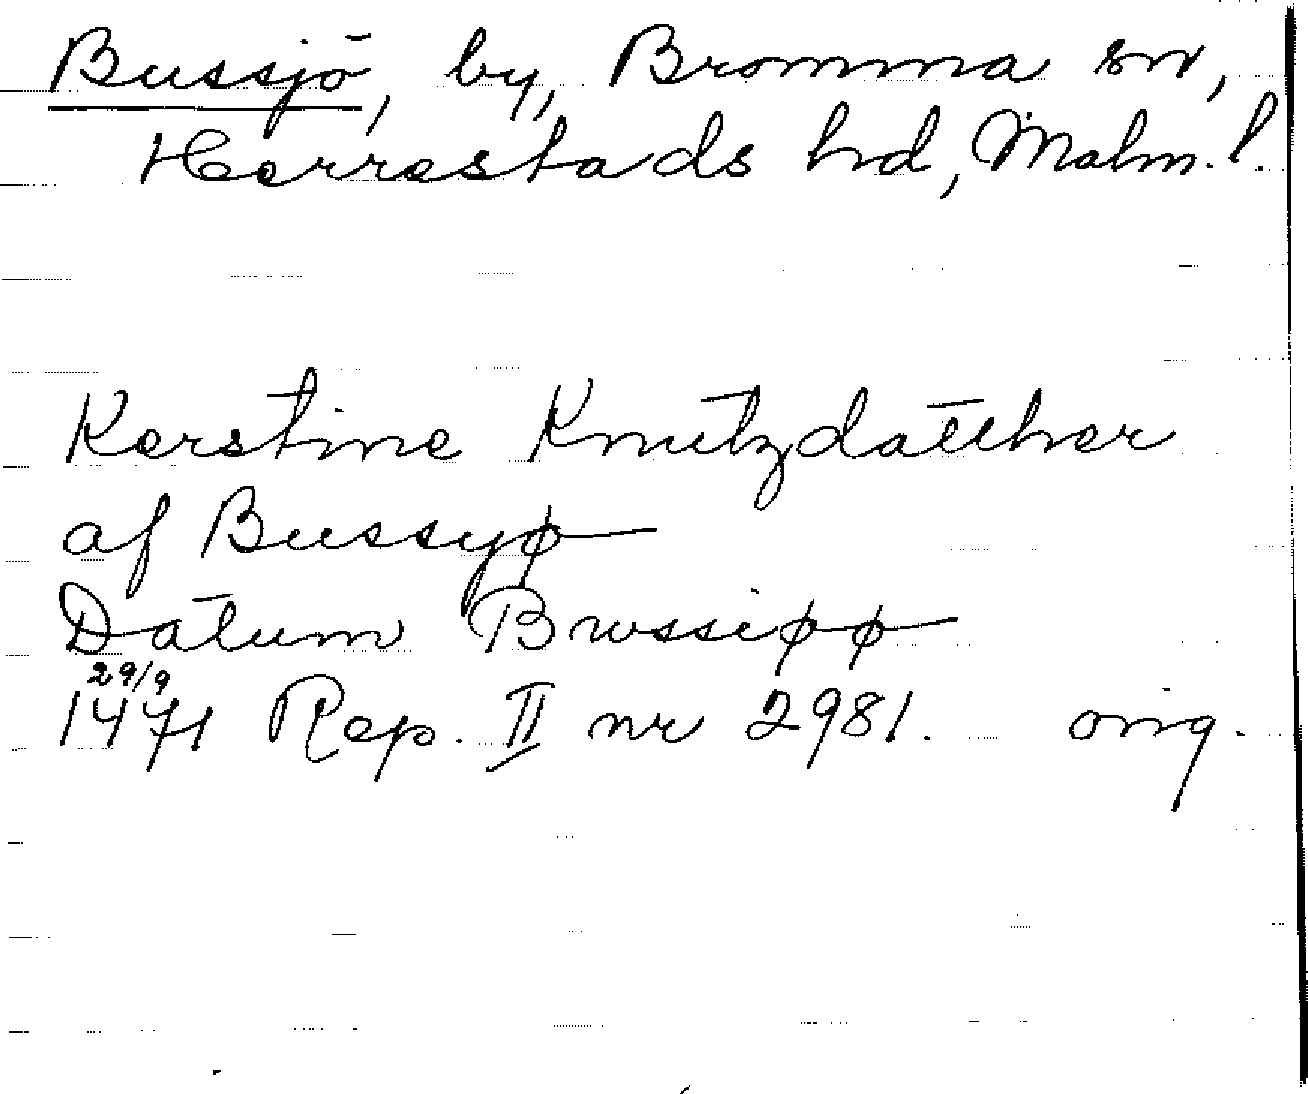 Bussjö, by, Bromma sn,
Herrestads hd, Malm. l.
Kerstine Knutzdatther
af Bussyø
Datum Bwssiøø
29/9
1471 Rep. II nr 2981. orig.